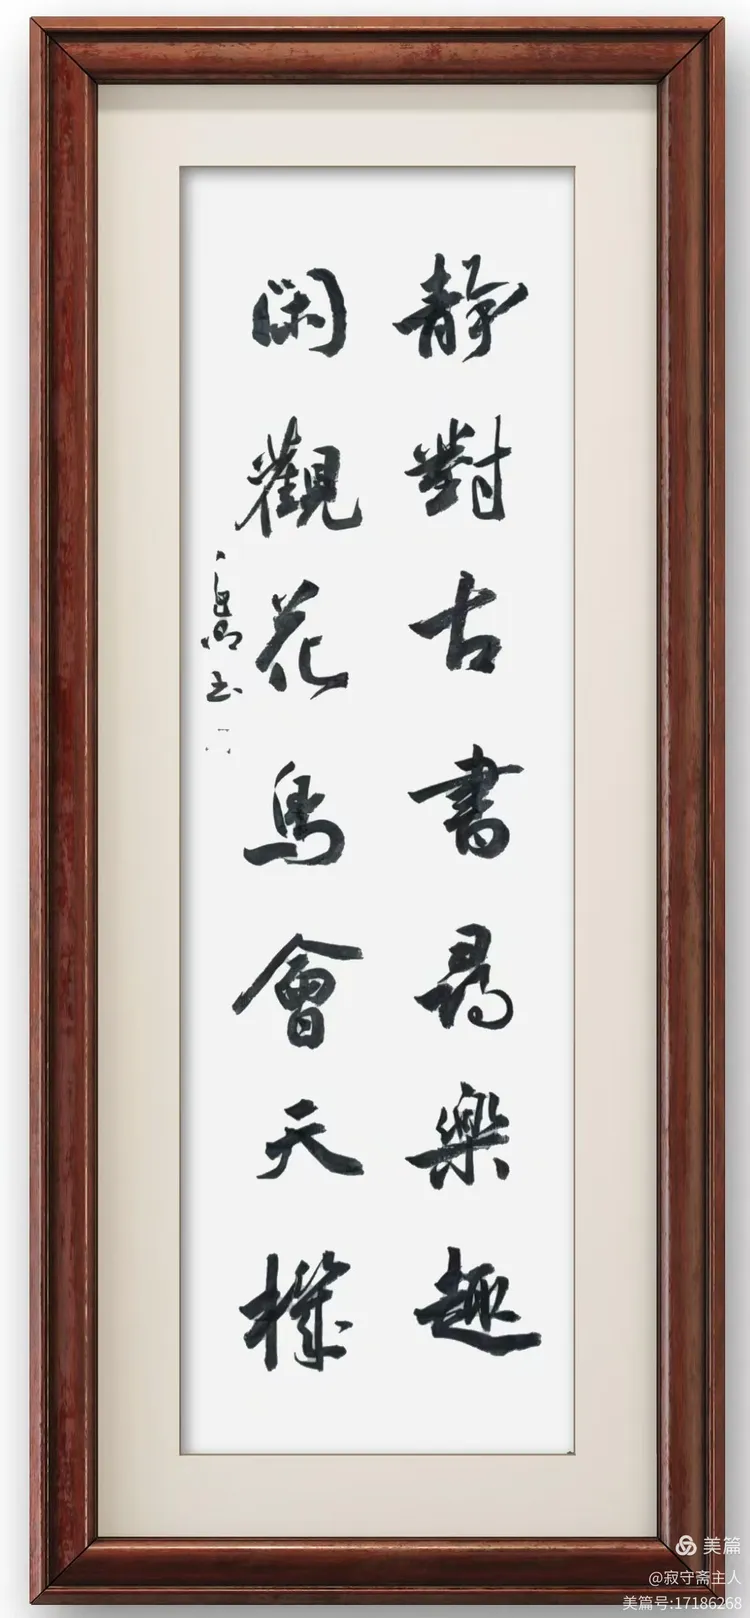 静對古書尋樂趣
閑觀花鳥會天機
美篇
@寂守斋主人
美篇号:17186268